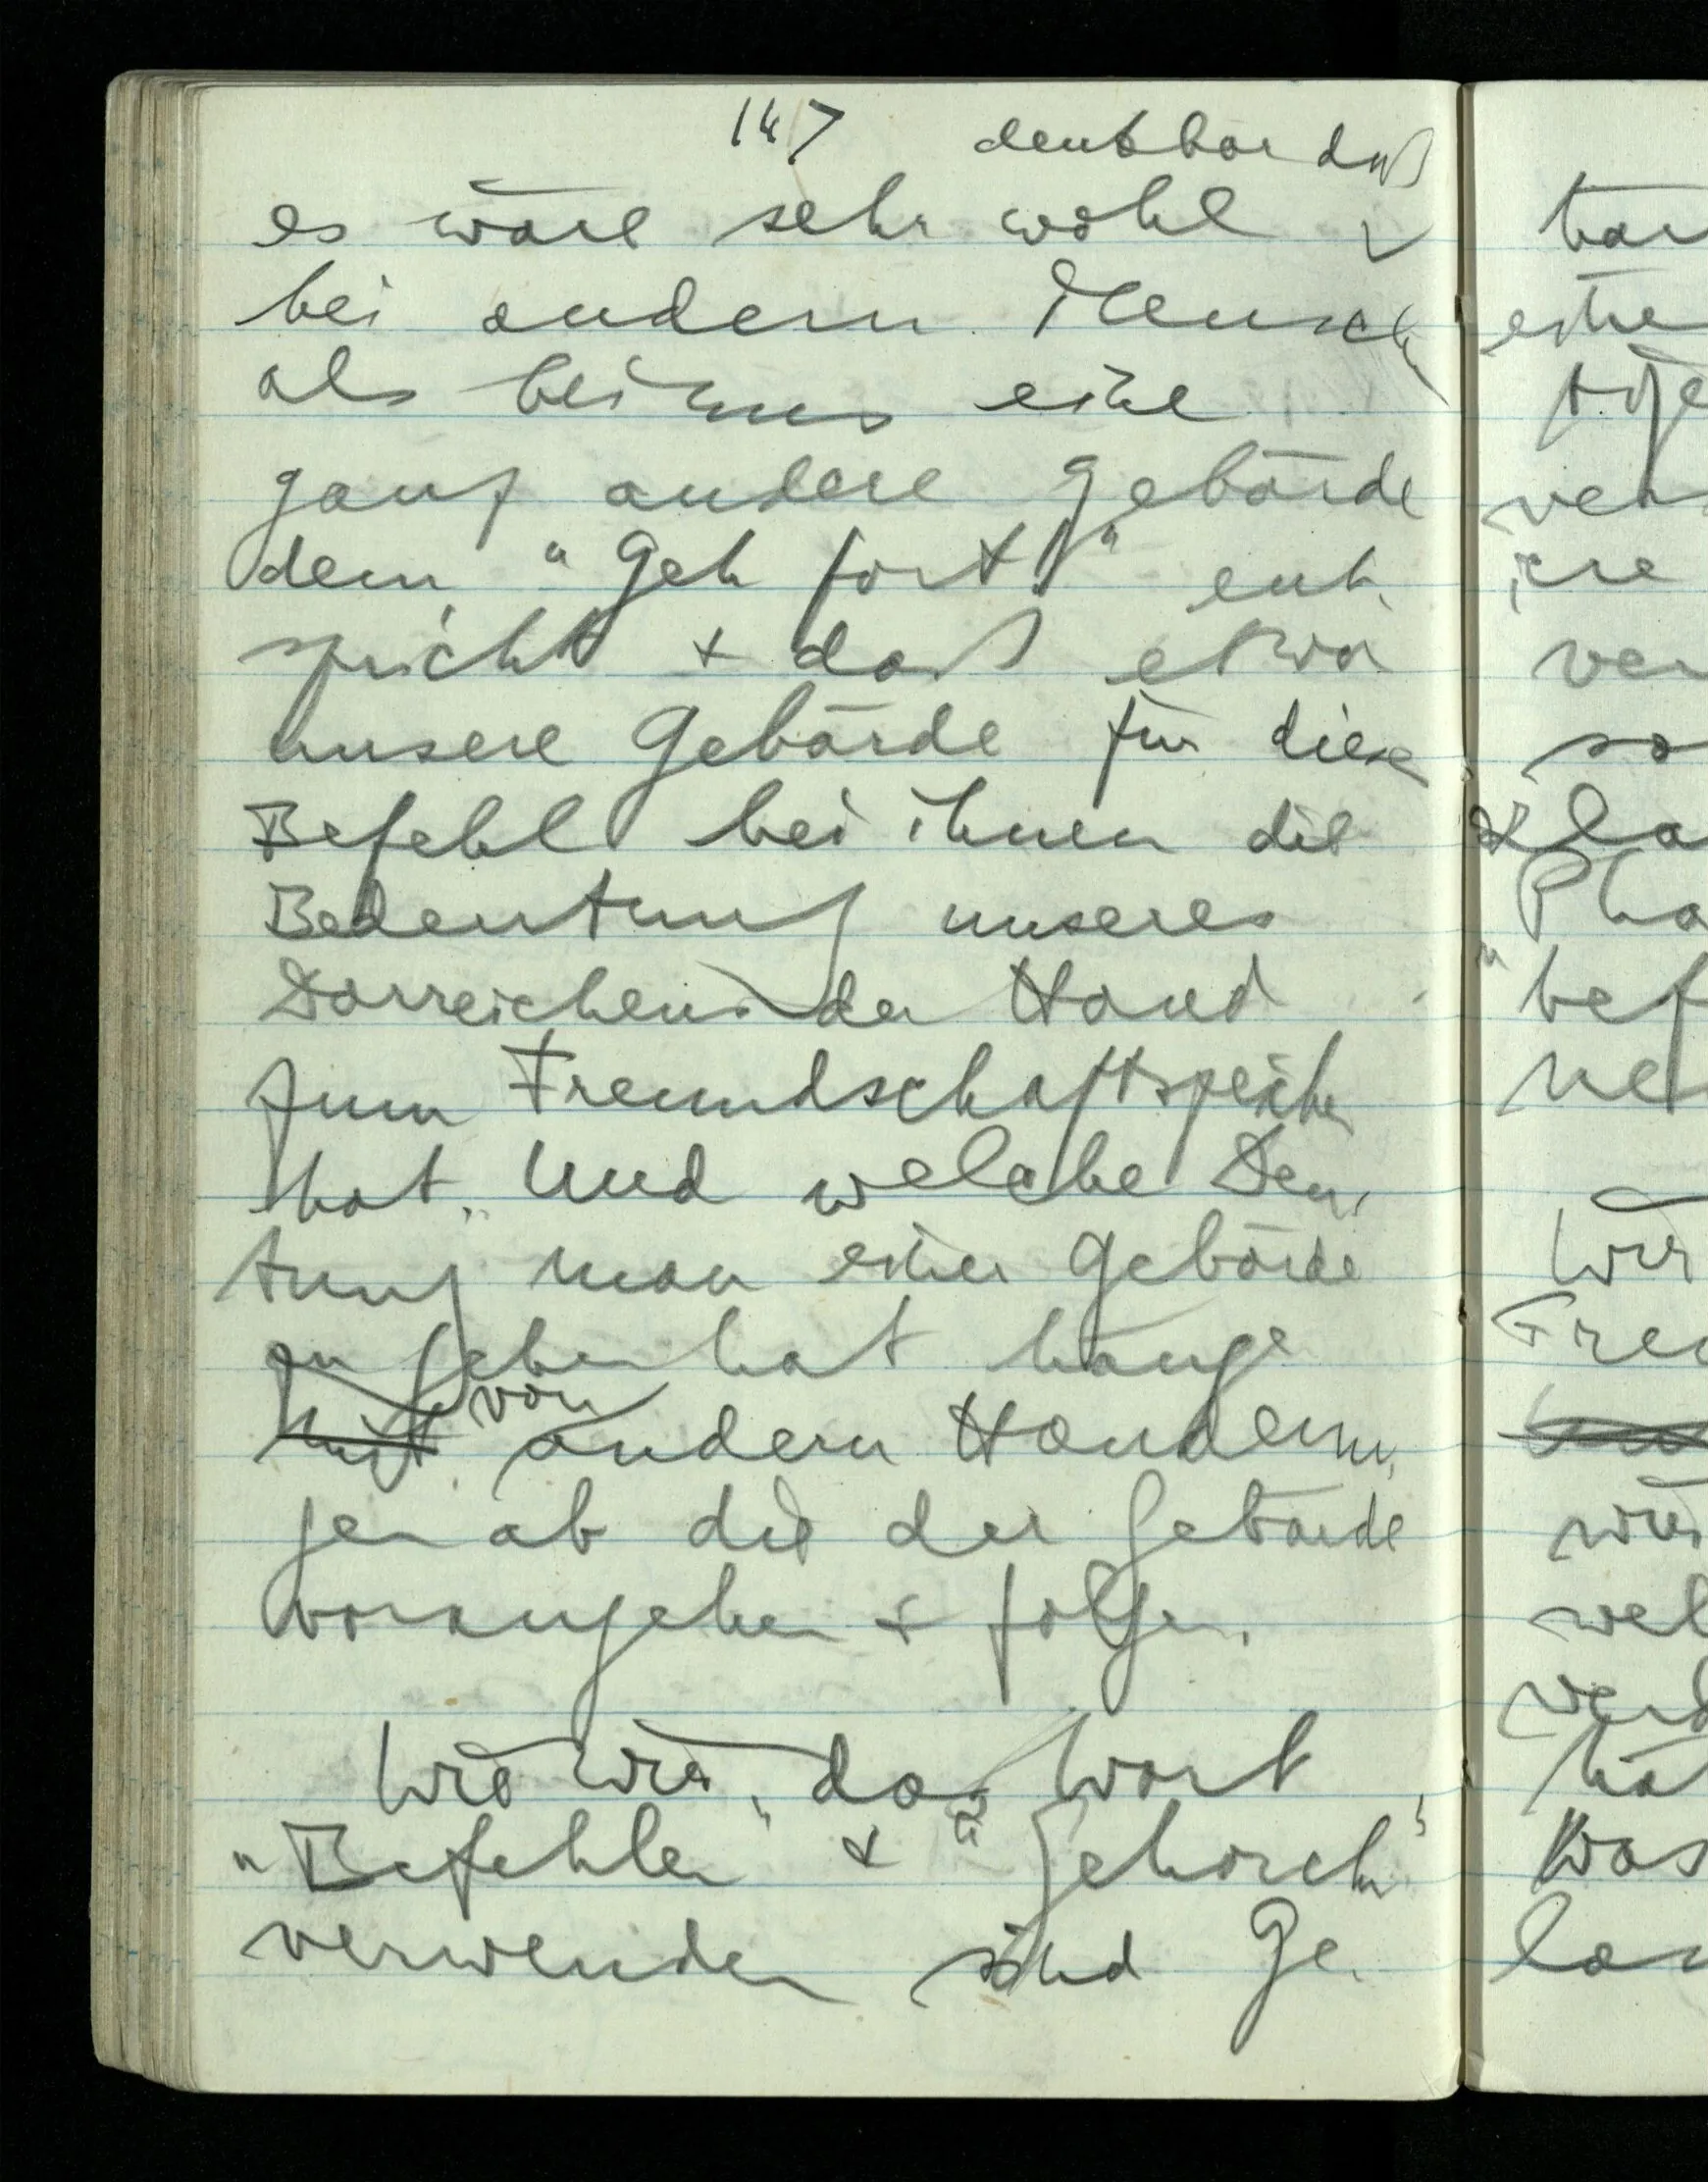 147 denkbar daß
es wäre sehr wohl
bei andern Menschen
als bei uns eine
ganz andere Gebärde
dem „Geh fort!“ ent-
spricht & daß etwa
unsere Gebärde für diesen
Befehl bei ihnen die
Bedeutung unseres
Darreichens der Hand
zum Freundschaftszeichen
hat. Und welche Deu-
tung man einer Gebärde
zu geben hat hänge
mit von
andern Handlun-
gen ab die der Gebärde
vorangehen & folgen.
Wie wir das Wort
„Befehlen“ & „Gehorchen“
verwenden sind Ge-